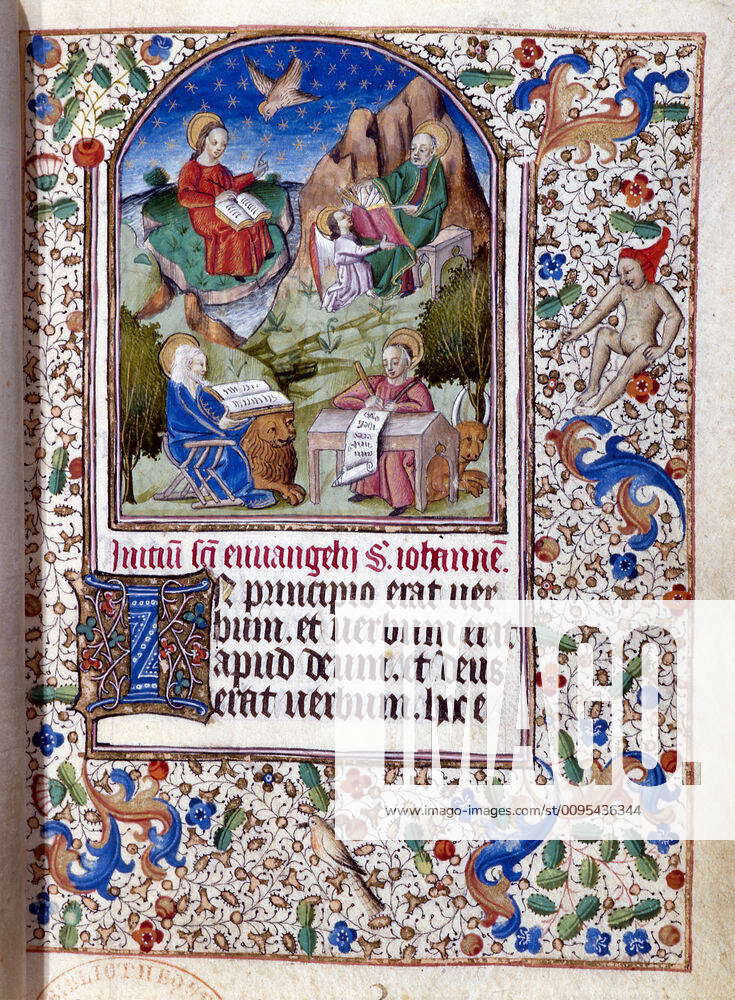 Initiū sc̄i euuangelij S. iohannē.
In principio erat uer
bum. et uerbum erat
apud deum. et deus
erat uerbum. hoc e
IMAGO
www.imago-images.com/st/0095436344